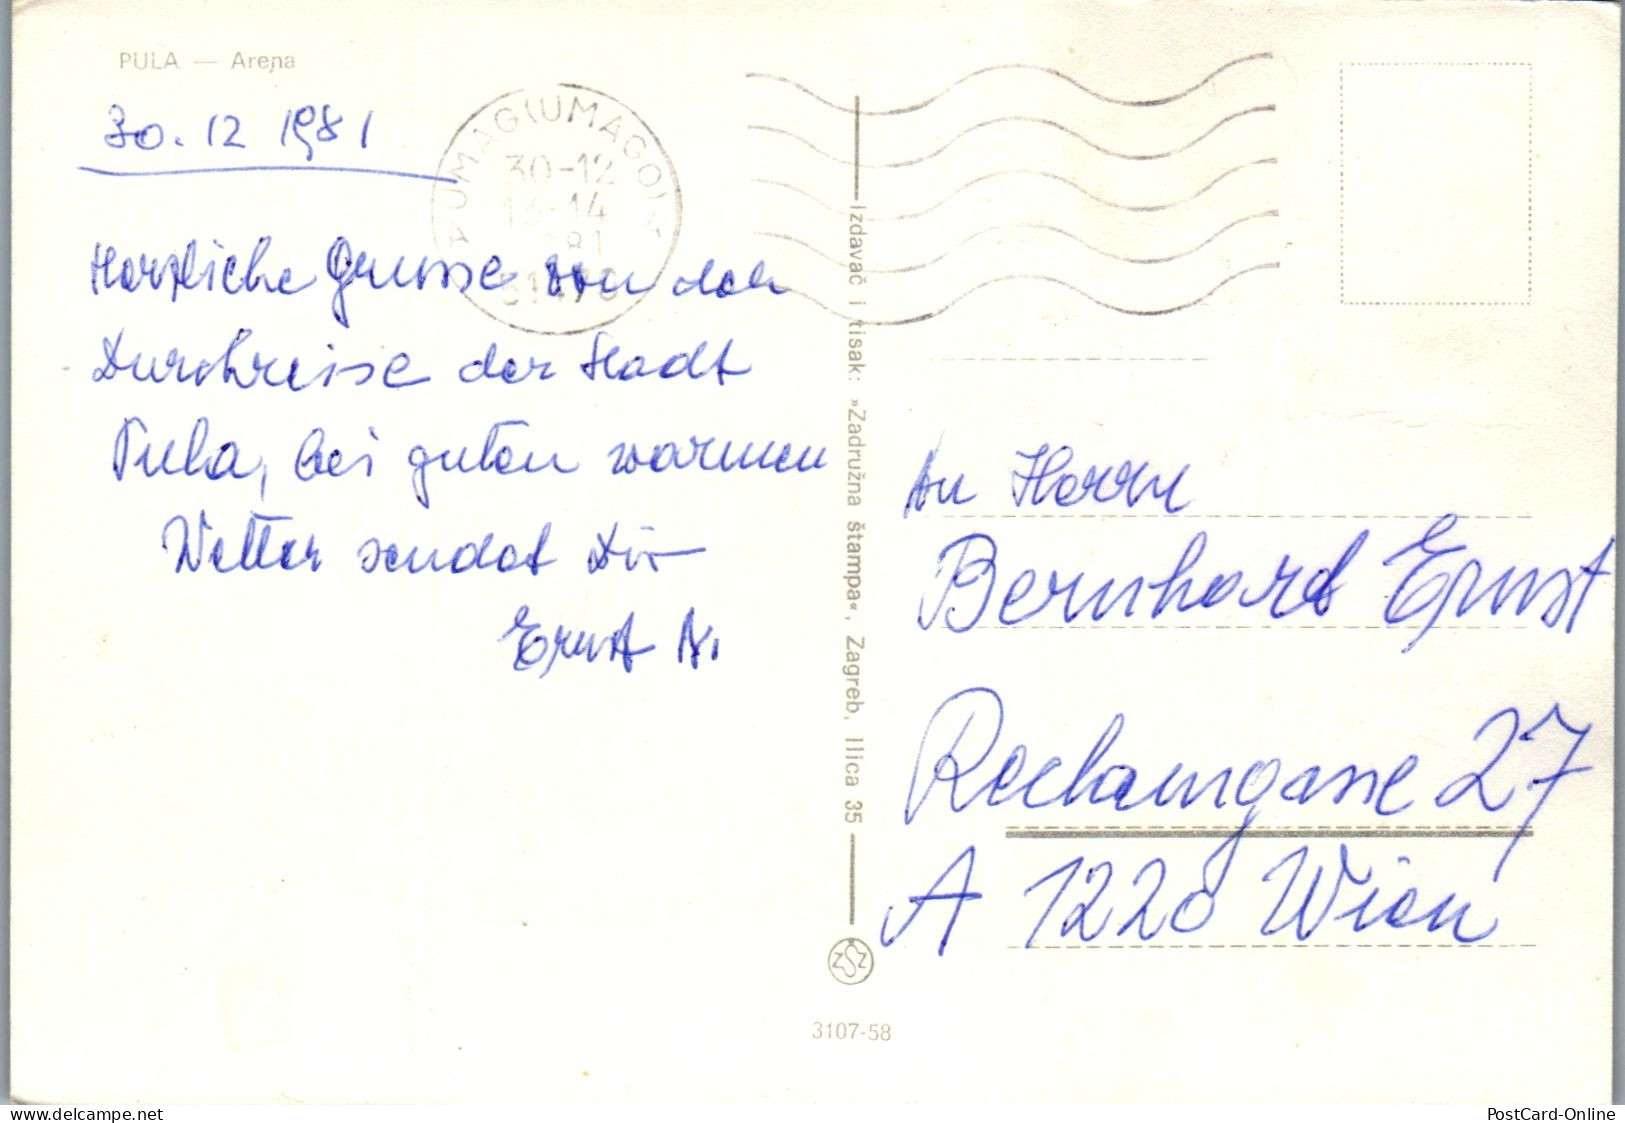 PULA — Arena
30. 12 1981
UMAG(UMAGO)
30-12
13-14
81
Herzliche Grusse von der
Durchreisse der Stadt
Pula, bei guten warmen
Wetter sendet Dir
Ernst
Izdavač i tisak: »Zadružna štampa«, Zagreb, Ilica 35
ZSZ
3107-58
An Herrn
Bernhard Ernst
Reclamgasse 27
A 1220 Wien
www.delcampe.net
PostCard-Online